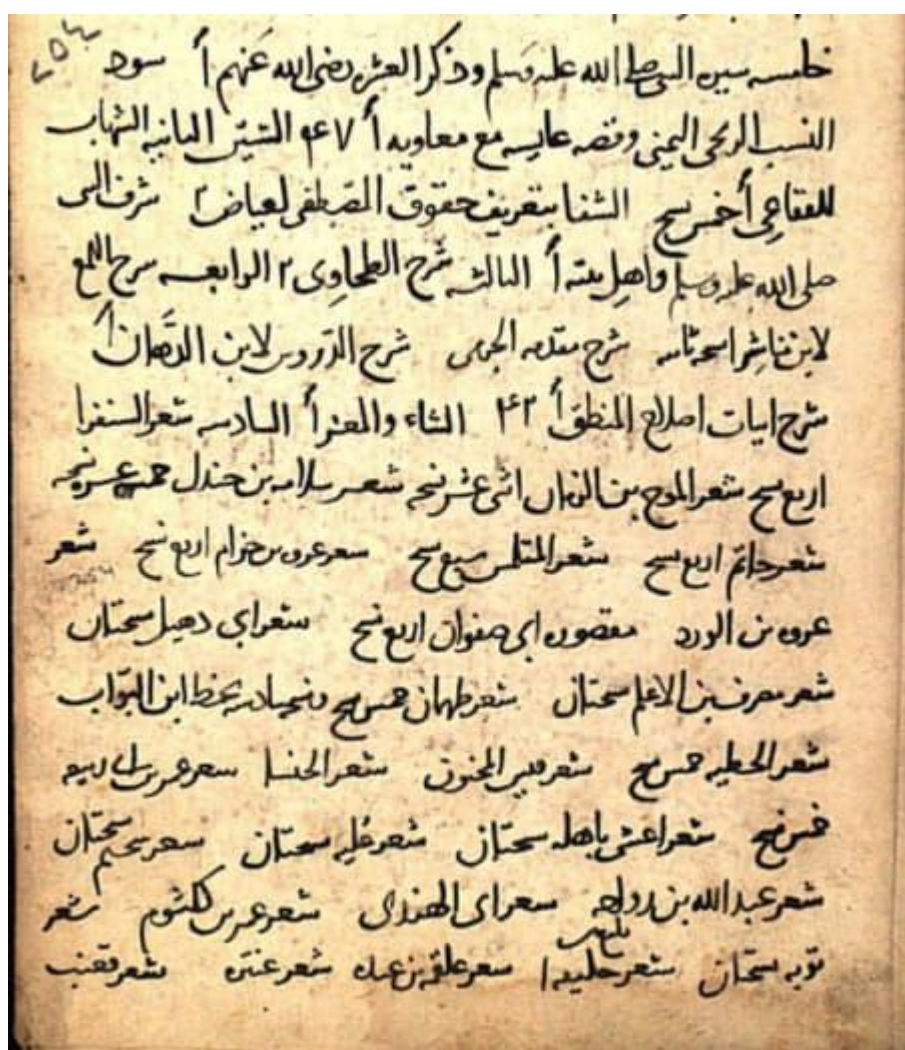 ٢٥٤
سيره النبي صلى الله عليه وسلم وذكر العشره رضى الله عنهم أ سود
النسب اليمني وقصه مع معاويه أ الستين الثانيه الشهاب
أ خمس نسخ الشفا بتعريف حقوق المصطفى لعياض ٢ شرف النبى
صلى الله عليه وسلم واهل بيته أ الثالثه شرح الطحاوى ٢ الرابعه شرح اللمع
لابن شرح مقدمه الجرمى شرح الدروس لابن الدهان أ
شرح ابيات اصلاح المنطق أ الشاء والمعز أ السادسه شعر الشنفرا
اربع نسخ شعر بن اثنى عشر نسخه شعر سلامه بن جندل خمس عشره نسخه
شعر حاتم اربع نسخ شعر المتلمس سبع نسخ شعر عروه بن حزام اربع نسخ شعر
عروه بن الورد مقصوره ابى صفوان اربع نسخ شعر ابى دهبل نسختان
شعر بن الاعلم نسختان شعر طهمان خمس نسخ ونسخه سادسه بخط ابن البواب
شعر الحطيه خمس نسخ شعر قيس المجنون شعر الخنسا شعر عمر بن ابى ربيعه
خمس نسخ شعر اعشى باهله نسختان شعر نسختان شعر سحيم نسختان
شعر عبد الله بن رواحه شعر ابى الهندى شعر عمرو بن كلثوم شعر
توبه نسختان شعر شعر علقمه بن عبده شعر عنتره شعر قعنب